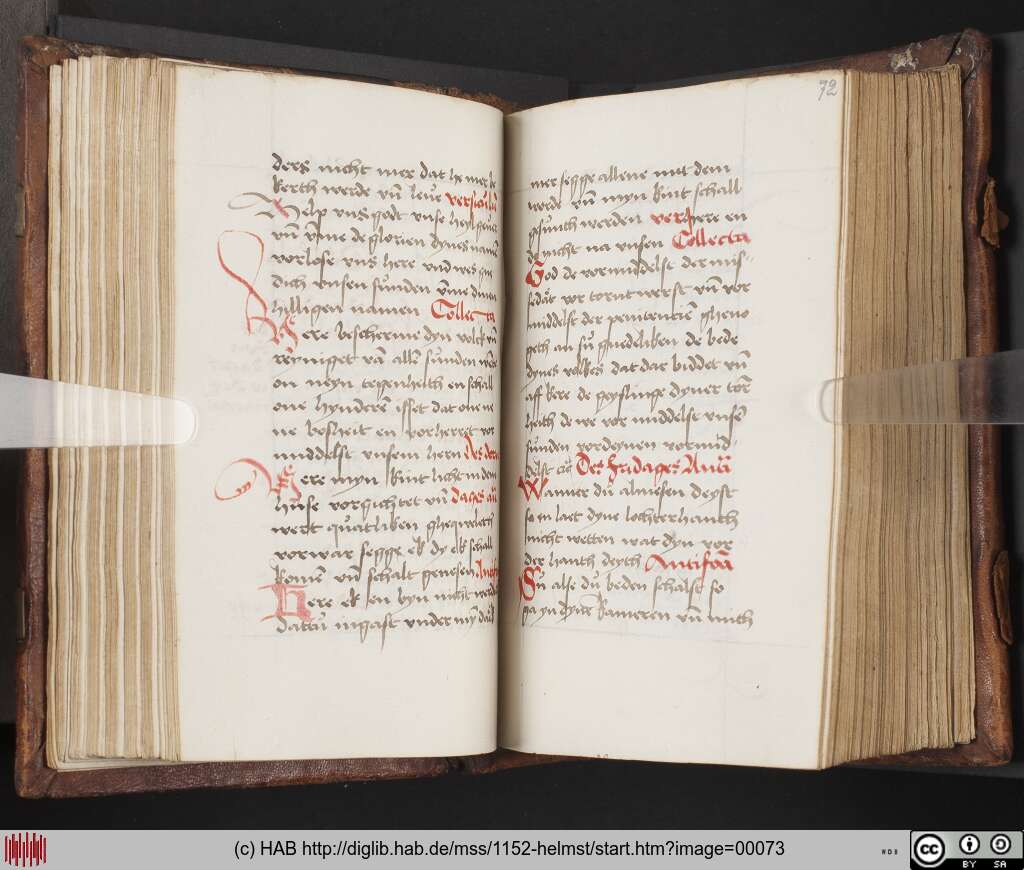 ders nicht mer dat he mer be
kerth werde vn̄ leue versiculū
Help vns godt vnse heylgeuer
vn̄ vm̄me de glorien dynes namē
vorlose vns here vnd wes gn
dich vnsen sunden vm̄me dinen
hilligen namen Collecta
Here bescherme dyn volck vn̄
reyniget van allē sunden wēte
on neyn iegenheith en schall
one hynderē isset dat one ne
ne bosheit en vorherret vor
middelst vnsem hern Des don
Here myn kint licht in dem
huse vorgichtet vn̄ dages an̄
wert quatliken ghequeleth
vorwar segge ek dy ek schall
komē vn̄ schalt genesen
Here ek en byn nicht werdich
dattu ingast vnder my dack
72
mer segge allene mit dem
worde vn̄ myn kint schall
gesunth werden vers here en
do nicht na vnsen Collecta
God de vormiddelst der mis
sedat vor tornt werst vn̄ vor
middelst der penitencien gheno
geth an su gnedeliken de bede
dynes volkes dat dar biddet vn̄
aff kere de geyslinge dyner torn
heith de we vor middelst vnsen
sunden vordeynen vormid
delst Des fridages Antā
Wanner du almesen deyst
so en laet dyne lochterhanth
nicht wetten wat dyn vor
der hanth deyth Antifoā
Su alse du beden schalst so
ga yn dyne kameren vn̄ mith
(c) HAB http://diglib.hab.de/mss/1152-helmst/start.htm?image=00073
WDB
cc
BY SA